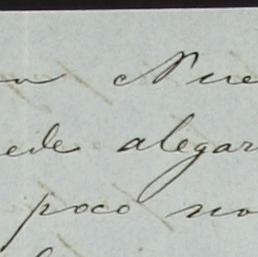 n Nue
ede alegar
poco no